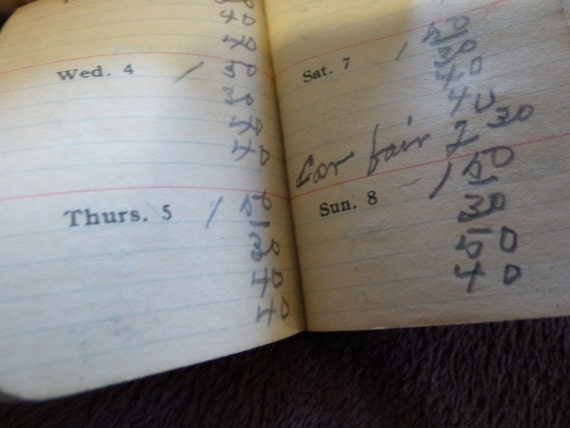 40
40
Wed. 4 / 30
30
50
40
Thurs. 5 / 50
30
40
40
Sat. 7 / 50
30
40
40
Car fair 2 30
Sun. 8 / 50
30
50
40